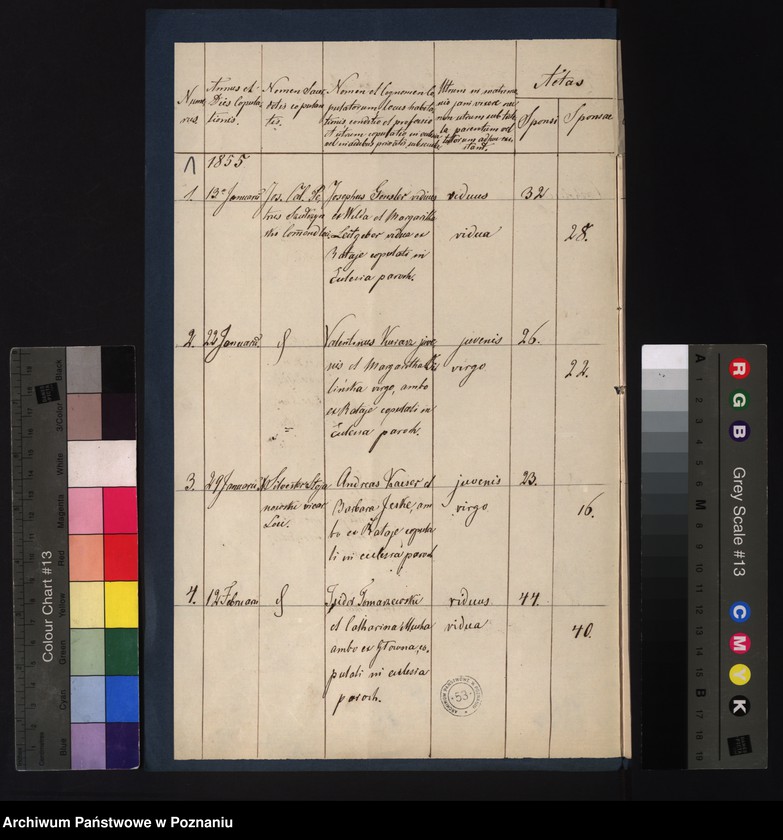 Numerus
Annus et Dies Copulationis.
Nomen Sacerdotis copulantis.
Nomen et Cognomen Copulatorum locus habitationis conditio et professio et utrum copulatio in ecclesia vel in aedibus privatis
Utrum in matrimonio jam vixere nec non utrum sub tutela parentum vel tutorum adhuc existant.
Aetas
Sponsi
Sponsae
1855
1. 13 Januarii Jos. Cal. Josephus Gensler viduus viduus 32
ex Wilda et Margaritha
Leitgeber vidua ex vidua 28.
Rataje copulati in
Eclesia paroch.
2. 22 Januarii Valentinus juve juvenis 26.
nis et Magaritha virgo 22.
virgo, ambo
ex Rataje copulati in
Eclesia paroch.
3. 29 Januarii Silvester Andreas Kaeser et juvenis 23.
vicar Barbara Jeske am virgo 16.
Loci. bo ex Rataje copula
ti in eclesia paroch
4. 12 Februarii Isidor Tomaszewski viduus 44.
et Catharina Mucha vidua 40.
ambo ex Głowna co,
pulati in eclesia
paroch.
ARCHIWUM PAŃSTWOWE W POZNANIU
53
Colour Chart #13
Blue
Cyan
Green
Yellow
Red
Magenta
White
3/Color
Black
Grey Scale #13
R
G
B
C
M
Y
K
A
1
2
3
4
5
6
M
8
9
10
11
12
13
14
15
B
17
18
19
Archiwum Państwowe w Poznaniu